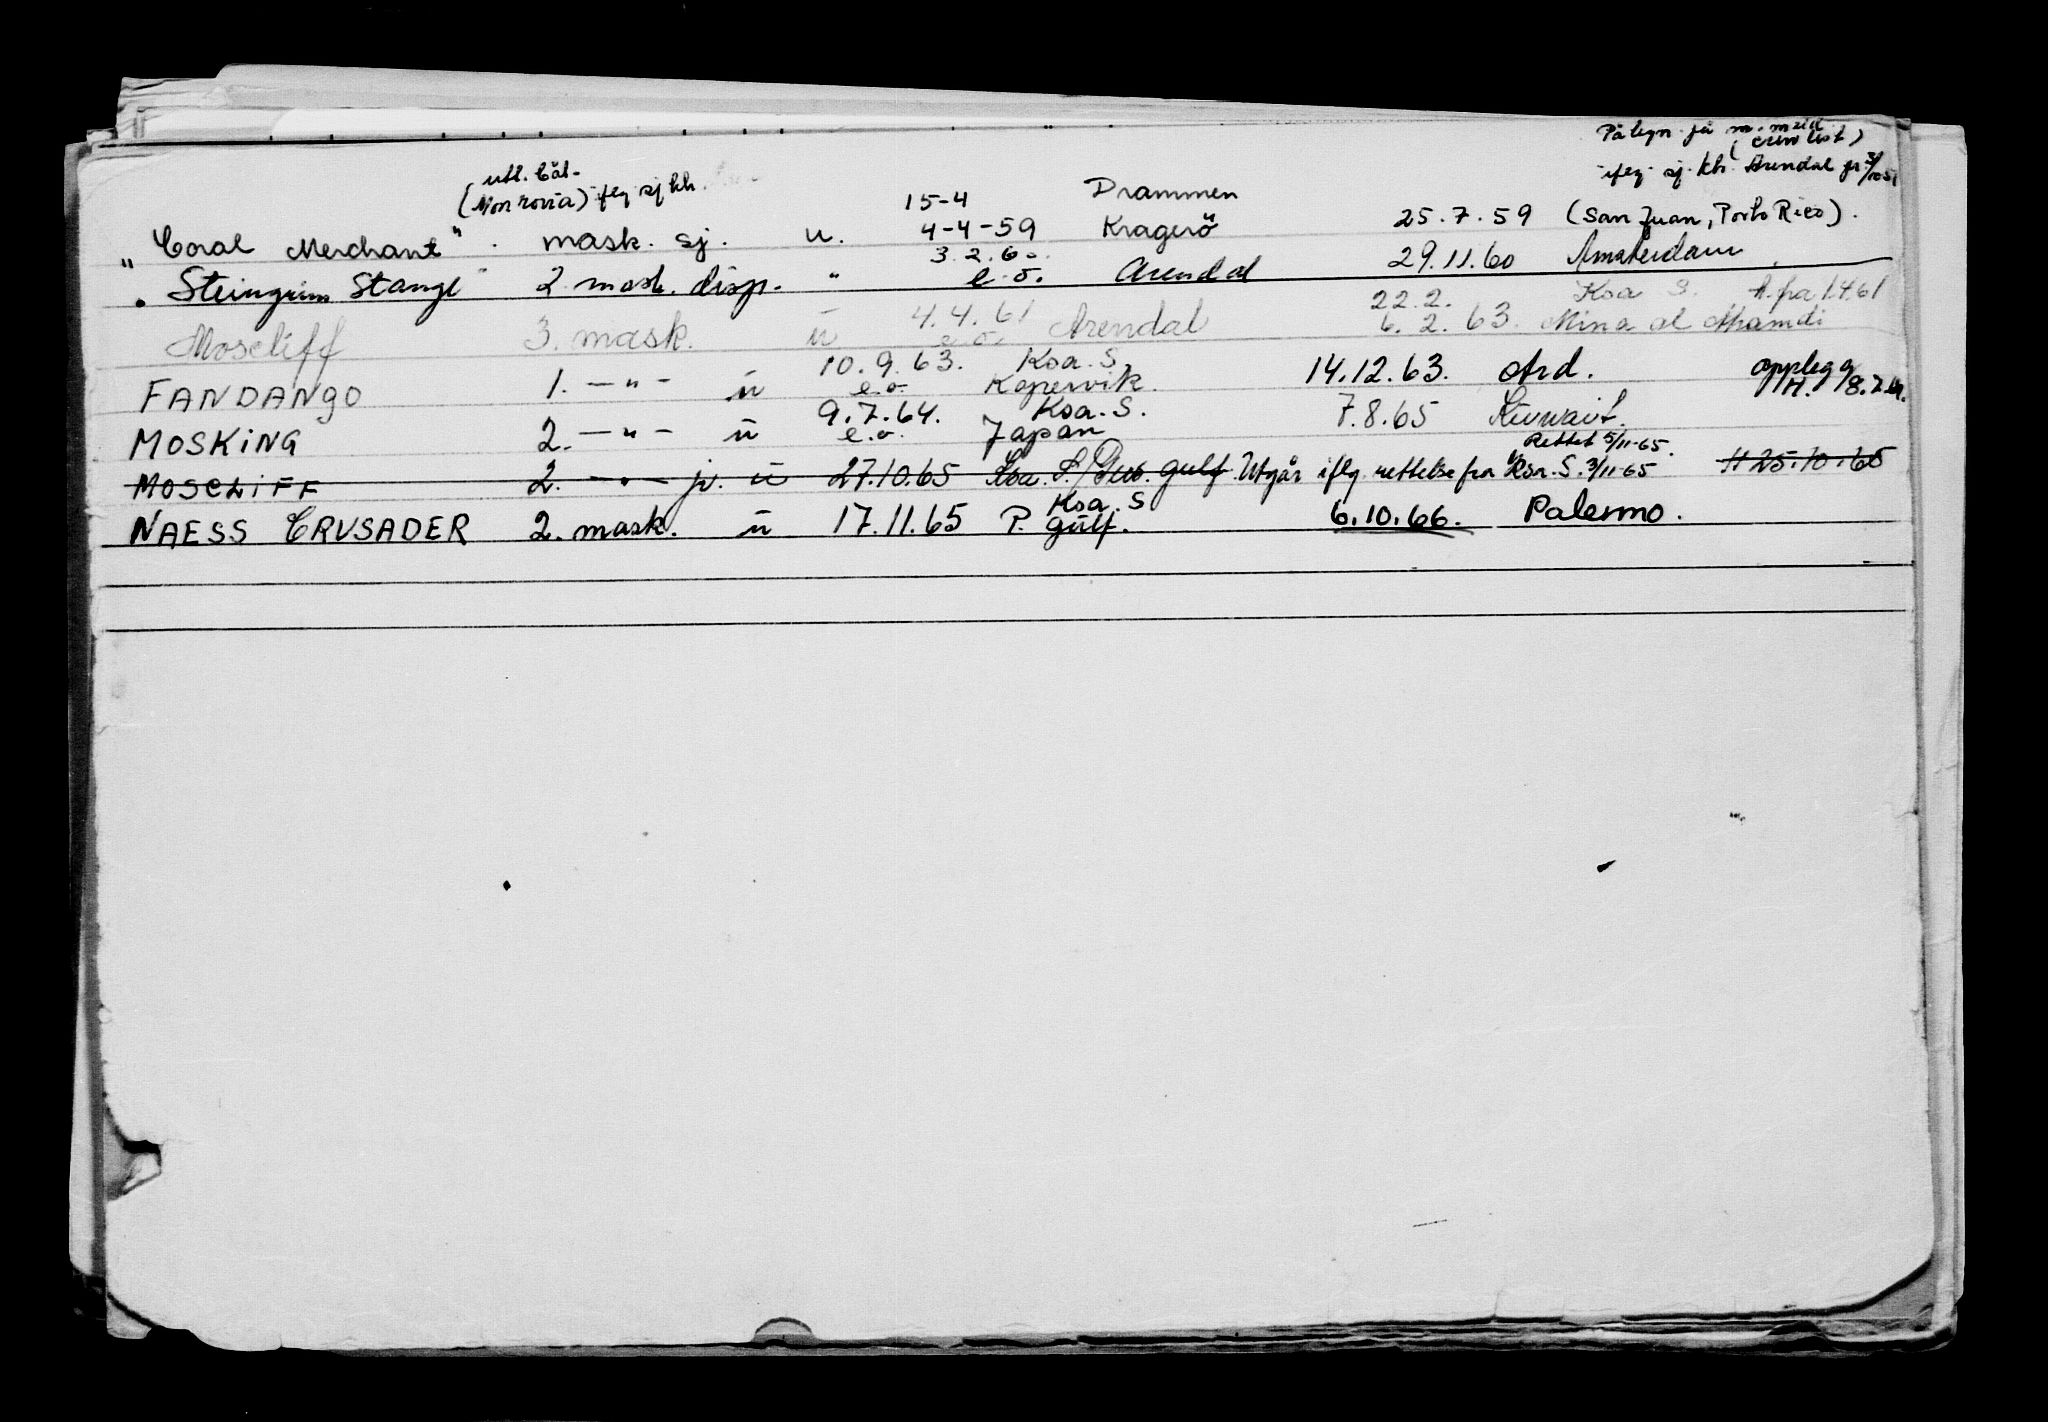 På legn. på m.
ifлg. sj. kh. Arendal
utl. båt-
(Monrovia) iflg sj kh.
15-4 Drammen
"Coral Merchant". mask. sj. u. 4-4-59 Kragerö 25.7.59 (San Juan, Porto Rico).
3.2.60.
"Steingrim Stange" 2 mask. disp. " e.o. Arendal 29.11.60 Amsterdam
22.2. Ksa S. H. fra 1.4.61
Moscliff 3. mask. u 4.4.61 e.o. Arendal 6.2.63. Mina al Ahamdi
10.9.63. Ksa. S.
FANDANGO 1. —"— u e.o. Kopervik. 14.12.63. Ard. opplegg H.
9.7.64. Ksa. S.
MOSKING 2. —"— u e.o. Japan 7.8.65 Kuwait.
Rettet 5/11-65.
MOSCLIFF 2. —"— u 27.10.65 Ksa. S./ gulf. Utgår iflg. rettelse fra Ksa. S. 3/11-65 H 25.10.65
Ksa. S
NAESS CRUSADER 2. mask. u 17.11.65 P. gulf. 6.10.66. Palermo.